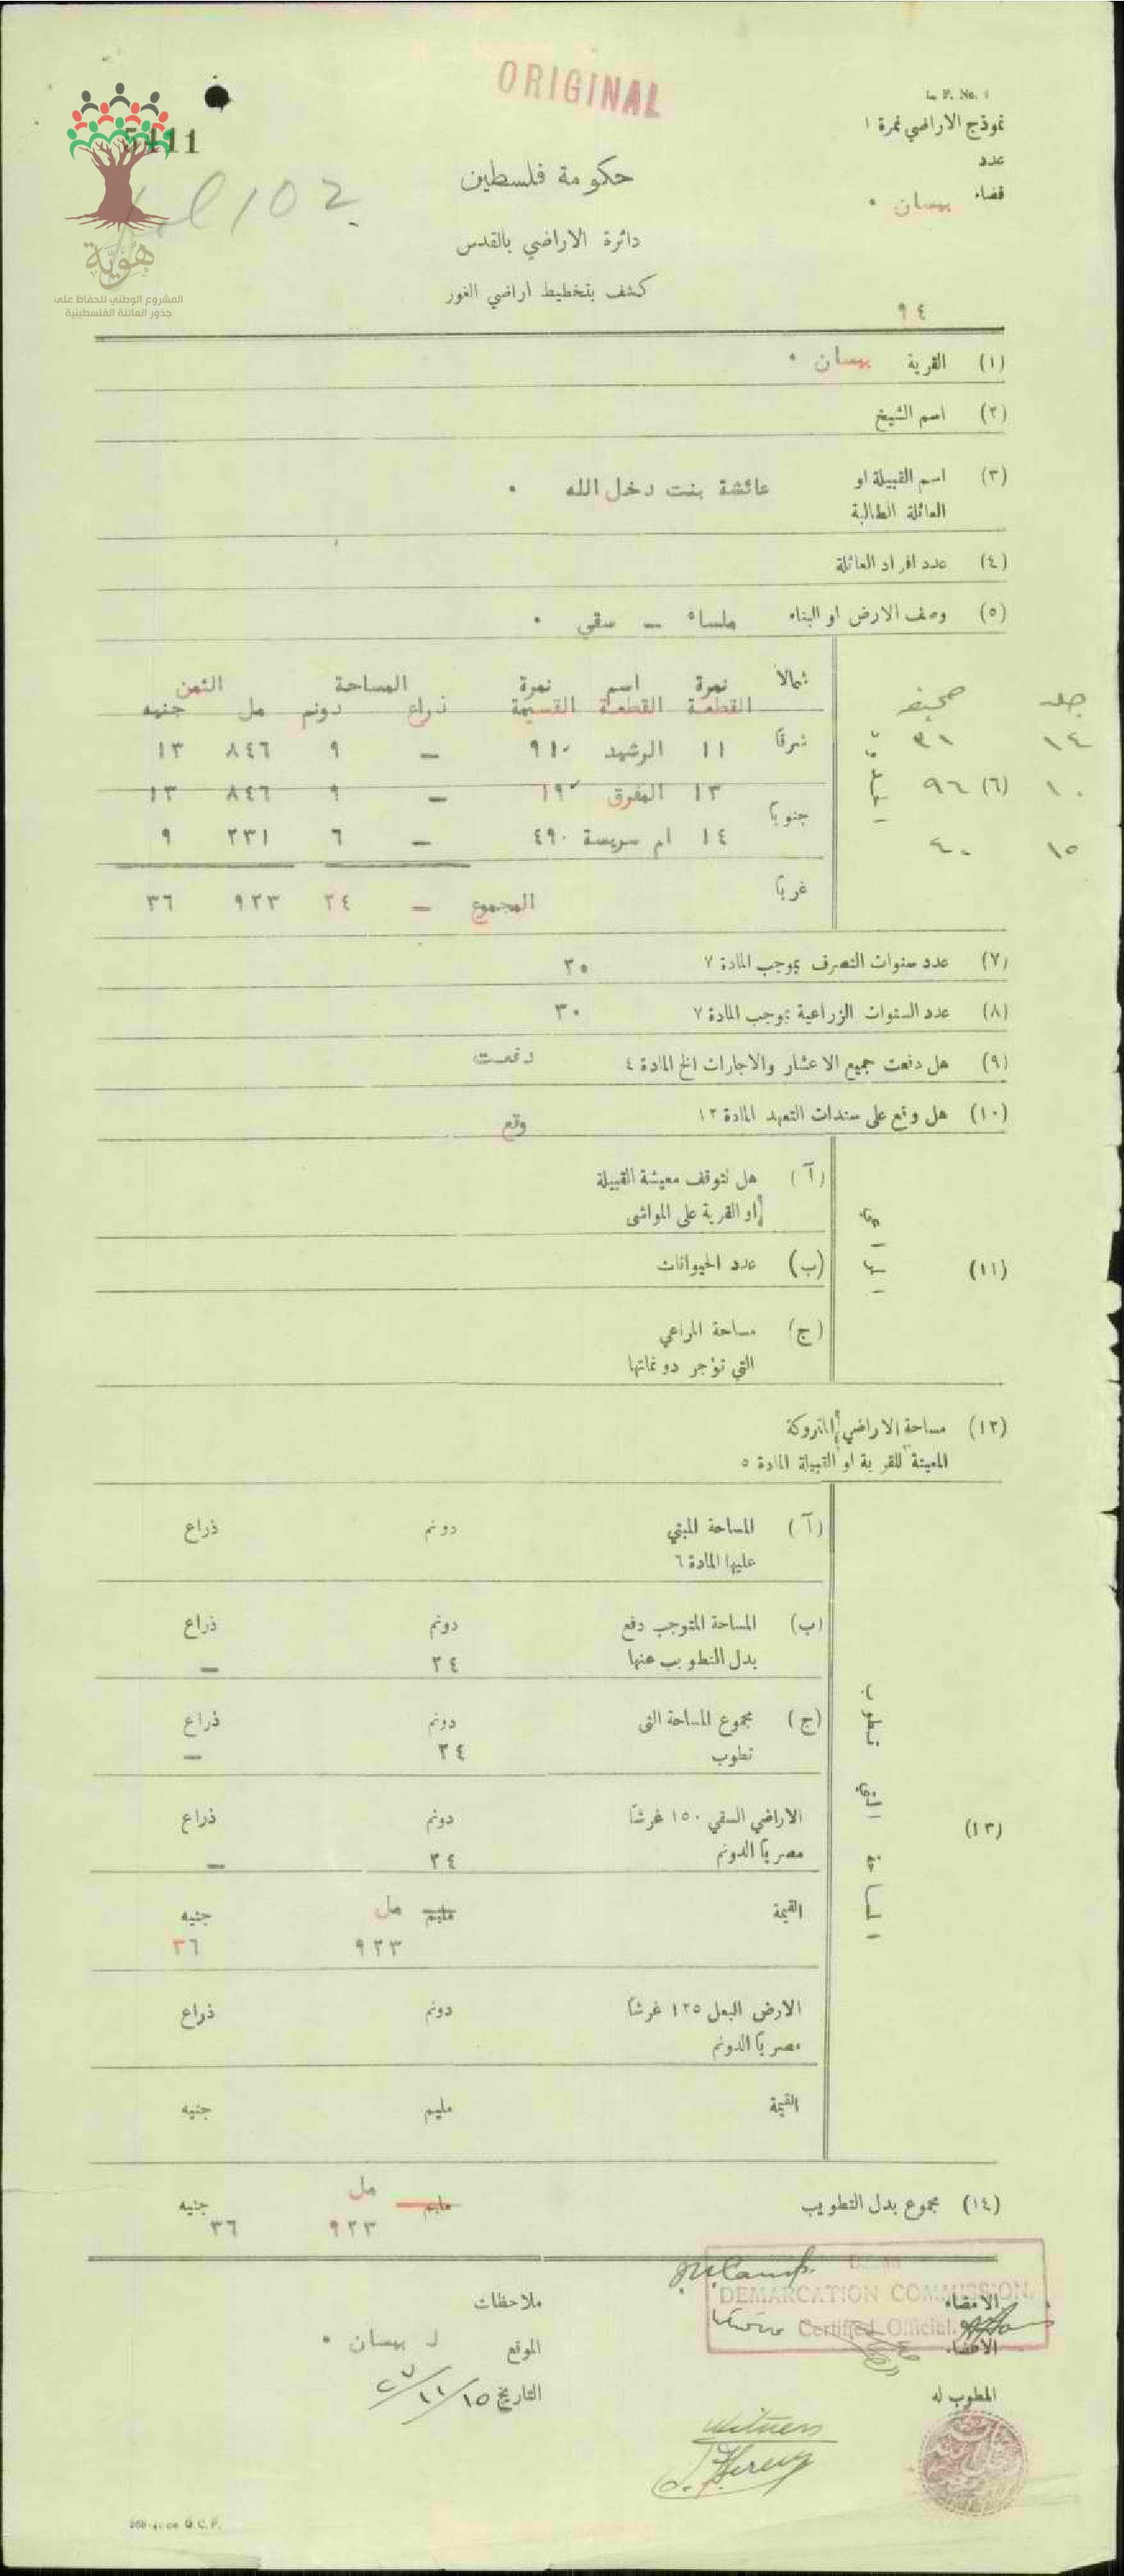 ORIGINAL
L. P. No. 1
نموذج الاراضي نمرة ١
5411
عدد
قضاء بيسان ٠
102
حكومة فلسطين
دائرة الاراضي بالقدس
كشف بتخطيط اراضي الغور
٩٤
هُويَّة
المشروع الوطني للحفاظ على
جذور العائلة الفلسطينية
(١) القرية بيسان ٠
(٢) اسم الشيخ
(٣) اسم القبيلة او
العائلة الطالبة
عائشة بنت دخل الله ٠
(٤) عدد افراد العائلة
(٥) وصف الارض او البناء ملساء — سقي ٠
جلد صحيفه
شمالاً نمرة القطعة اسم القطعة نمرة القسيمة المساحة ذراع دونم الثمن مل جنيه
١٤ ٣١ شرقاً ١١ الرشيد ٩١٠ — ٩ ٨٤٦ ١٣
١٠ ٩٦ (٦) ١٣ المفرق ١٩ — ٩ ٨٤٦ ١٣
١٥ ٤٠ جنوباً ١٤ ام سريسة ٤٩٠ — ٦ ٢٣١ ٩
غرباً المجموع — ٢٤ ٩٢٣ ٣٦
(٧) عدد سنوات التصرف بموجب المادة ٧ ٣٠
(٨) عدد السنوات الزراعية بموجب المادة ٧ ٣٠
(٩) هل دفعت جميع الاعشار والاجارات الخ المادة ٤ دفعت
(١٠) هل وقع على سندات التعهد المادة ١٣ وقع
(١١) المراعي
(آ) هل تتوقف معيشة القبيلة
او القرية على المواشي
(ب) عدد الحيوانات
(ج) مساحة المراعي
التي تؤجر دونماتها
(١٢) مساحة الاراضي المتروكة
المعينة للقرية او القبيلة المادة ٥
(١٣) المساحة التي تطوب
(آ) المساحة المبني دونم ذراع
عليها المادة ٦
(ب) المساحة المتوجب دفع دونم ذراع
بدل التطويب عنها ٢٤ —
(ج) مجموع المساحة التي دونم ذراع
تطوب ٢٤ —
الاراضي السقي ١٥٠ غرشاً دونم ذراع
مصرياً الدونم ٢٤ —
القيمة مليم مل جنيه
٩٢٣ ٣٦
الارض البعل ١٢٥ غرشاً دونم ذراع
مصرياً الدونم
القيمة مليم جنيه
(١٤) مجموع بدل التطويب مليم مل جنيه
٩٢٣ ٣٦
DEMARCATION COMMISSION.
Certified Official.
الامضاء
الامضاء
المطوب له
ملاحظات
الموقع بيسان ٠
التاريخ ١٥/١١/٢٧
Witness